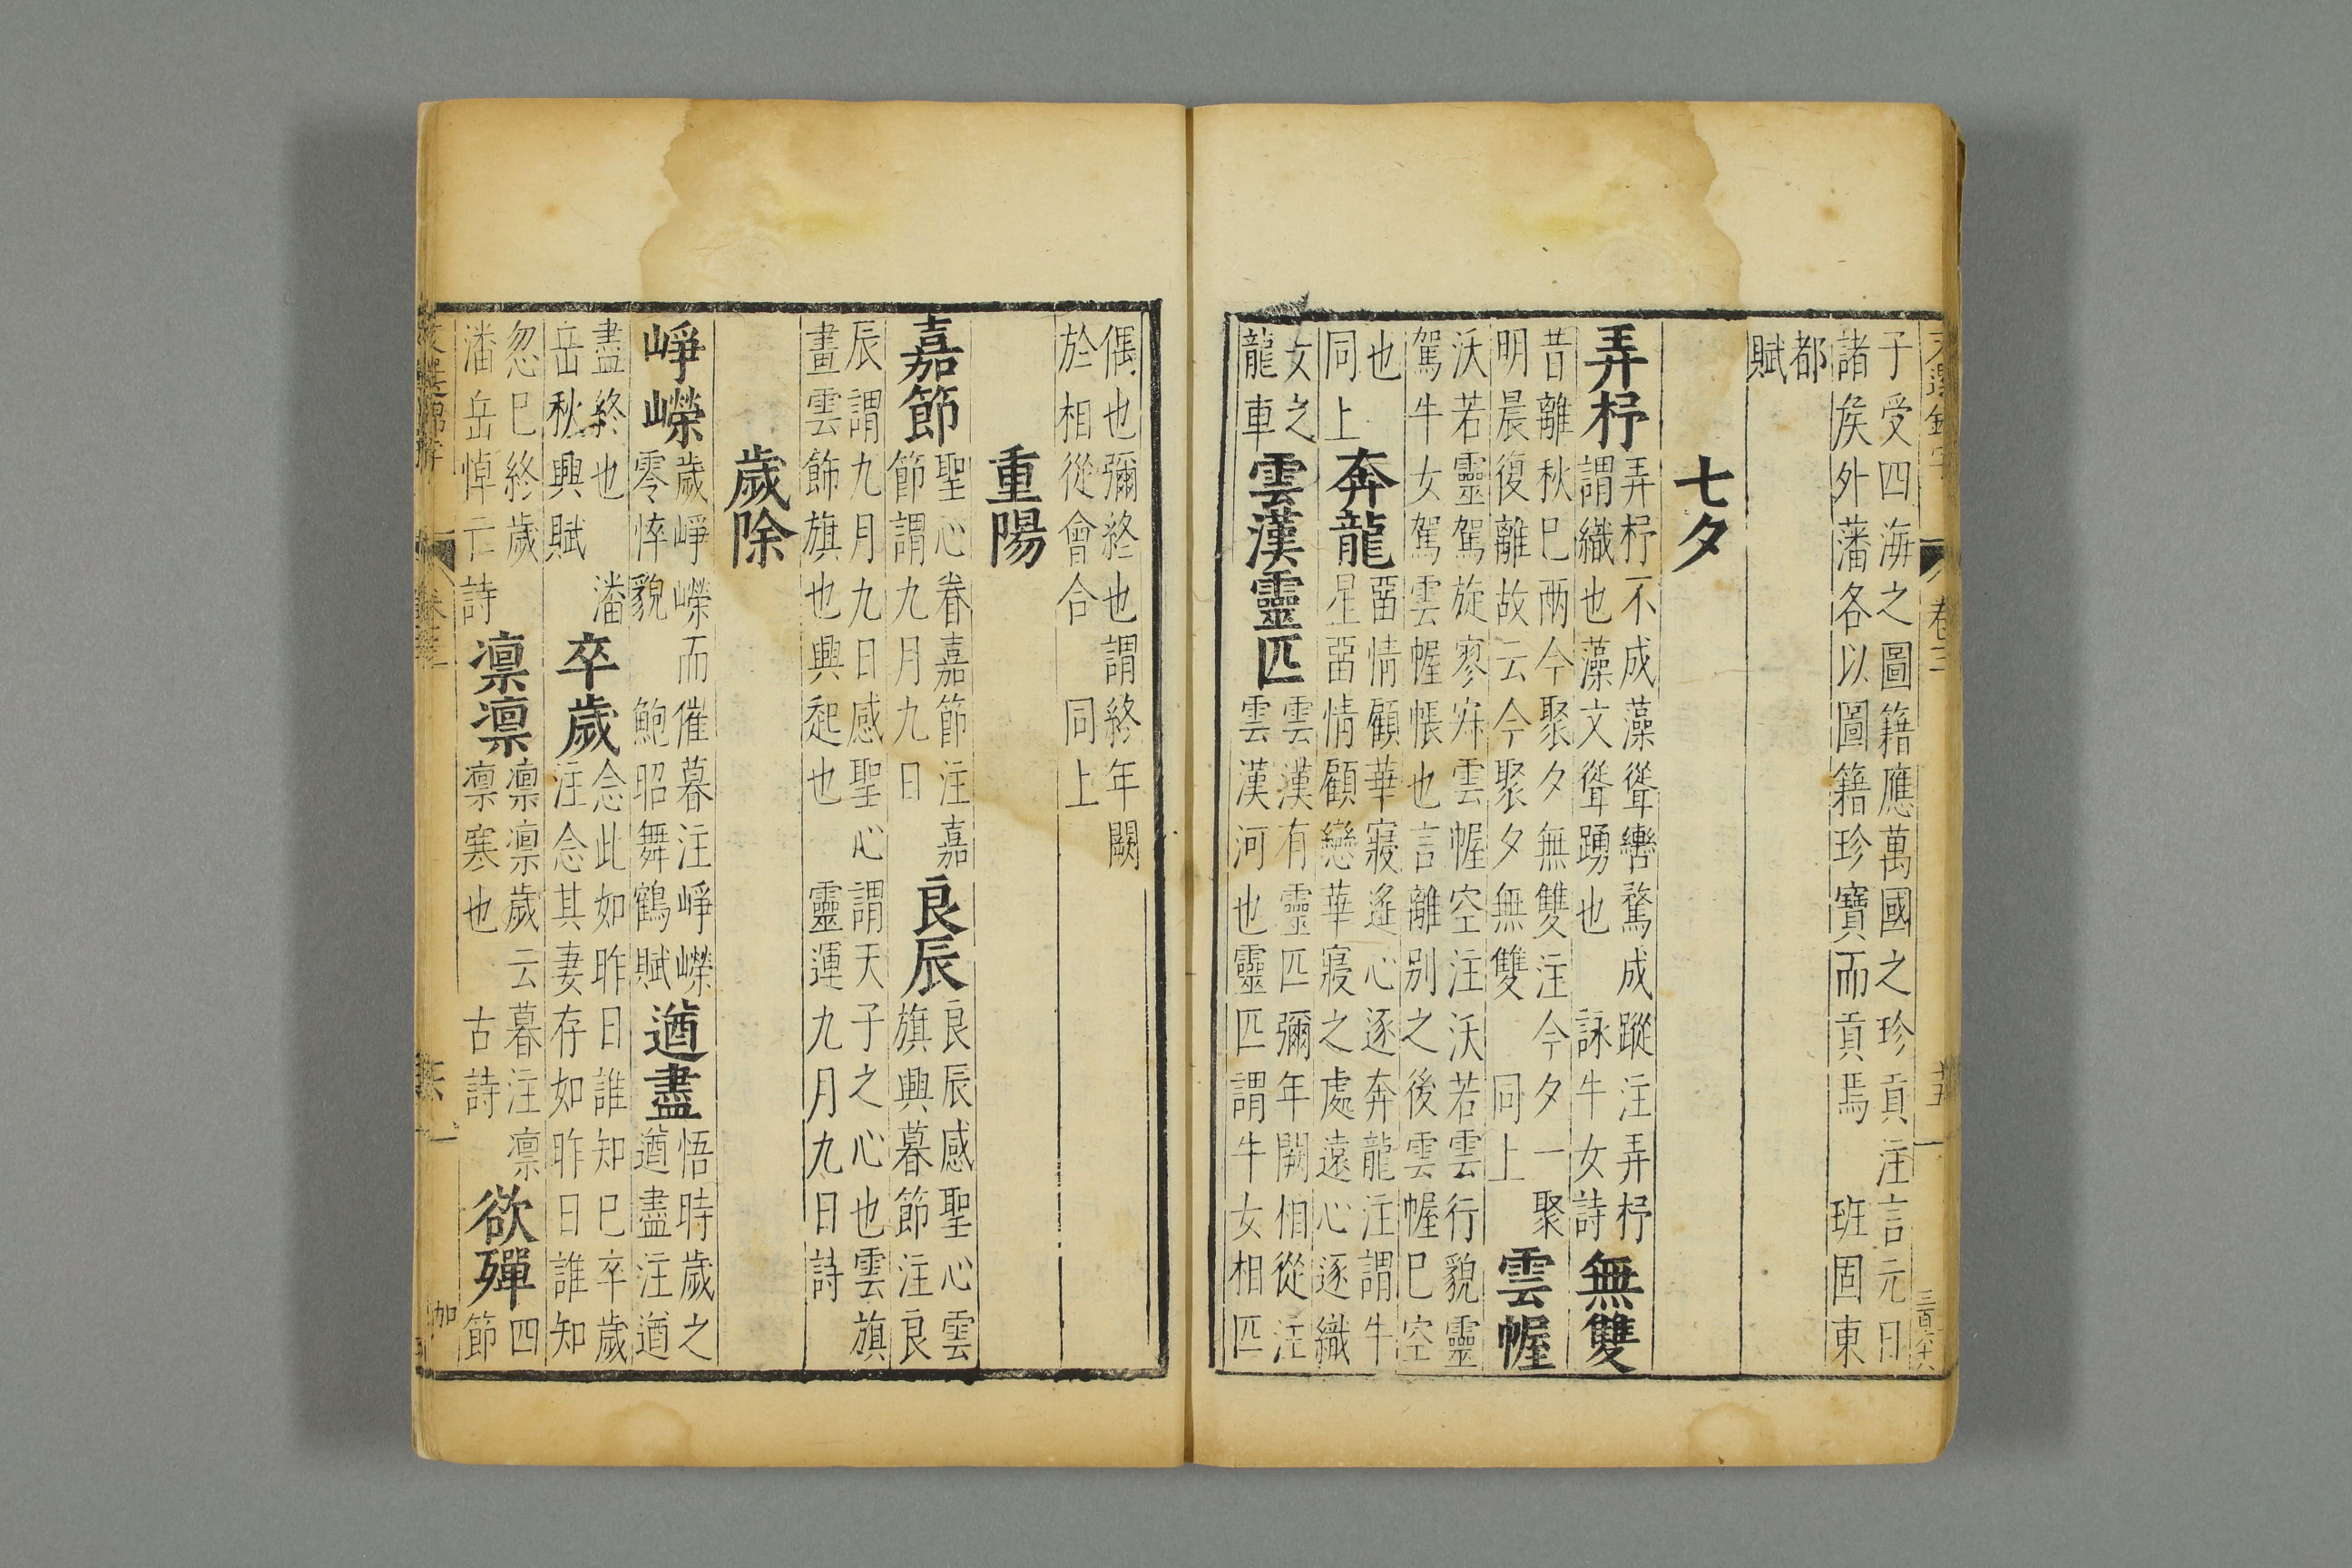 文選錦字 卷三 十五 三百六十八
子受四海之圖籍應萬國之珍貢注言元日
諸侯外藩各以圖籍珍寶而貢焉 班固東
都
賦
七夕
弄杼
弄杼不成藻聳轡騖成蹤注弄杼
謂織也藻文聳踴也 詠牛女詩
無雙
昔離秋巳兩今聚夕無雙注今夕一聚
明晨復離故云今聚夕無雙 同上
雲幄
沃若靈駕旋寥寂雲幄空注沃若雲行貌靈
駕牛女駕雲幄帳也言離別之後雲幄巳空
也
同上
奔龍
畱情顧華寢遙心逐奔龍注謂牛
星畱情顧戀華寢之處遠心逐織
女之
龍車
雲漢靈匹
雲漢有靈匹彌年闕相從注
雲漢河也靈匹謂牛女相匹
偶也彌終也謂終年闕
於相從會合 同上
重陽
嘉節
聖心眷嘉節注嘉
節謂九月九日
良辰
良辰感聖心雲
旗興暮節注良
辰謂九月九日感聖心謂天子之心也雲旗
畫雲飾旗也興起也 靈運九月九日詩
歲除
崢嶸
歲崢嶸而催暮注崢嶸
零悴貌 鮑昭舞鶴賦
遒盡
悟時歲之
遒盡注遒
盡終也 潘
岳秋興賦
卒歲
念此如昨日誰知巳卒歲
注念其妻存如昨日誰知
忽巳終歲
潘岳悼亡詩
凛凛
凛凛歲云暮注凛
凛寒也 古詩
欲殫
四
節
文選錦字 卷三